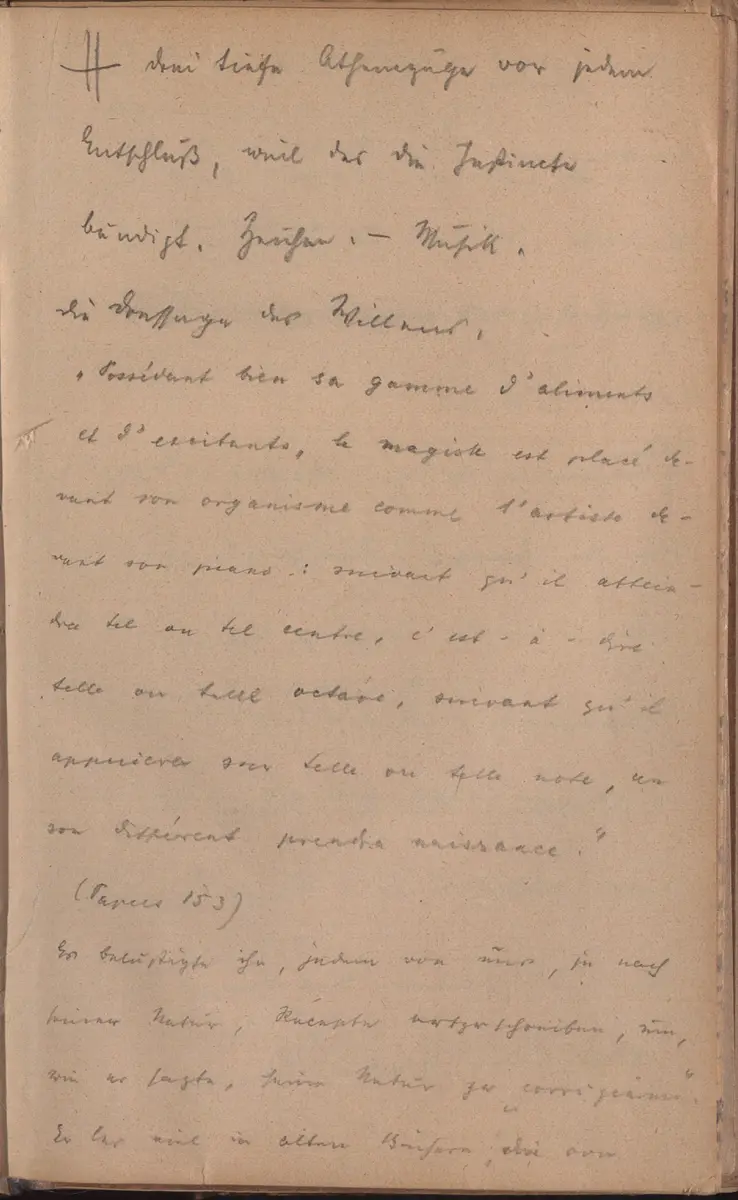 drei tiefe Athemzüge vor jedem
Entschluß, weil das die Instincte
bändigt. Zeichen. – Musik.
die Dressage des Willens.
„Possédant bien sa gamme d'aliments
et d'excitants, le magiste est placé de-
vant son organisme comme l'artiste de-
vant son piano: suivant qu'il attein-
dra tel ou tel centre, c'est-à-dire
telle ou telle octave, suivant qu'il
appuiera sur telle ou telle note, un
son différent prendra naissance."
(Papus 153)
Es belustigte ihn, jedem von uns, je nach
seiner Natur, Recepte vorzuschreiben, um,
wie er sagte, seine Natur zu „corrigieren".
Er las viel in alten Büchern, die von